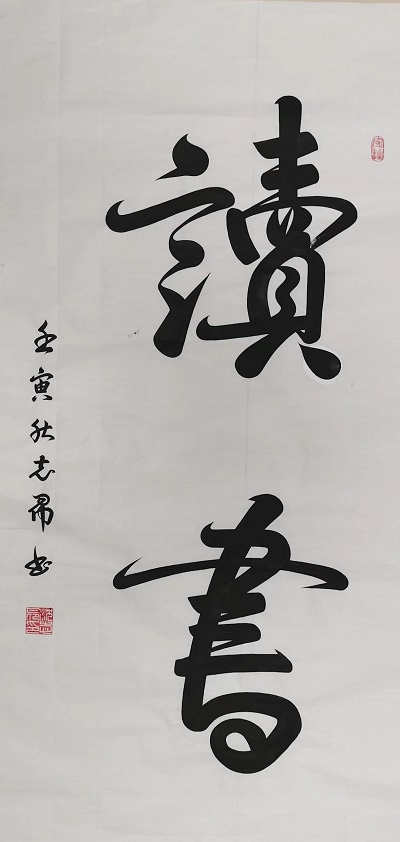 讀書
壬寅秋志昂书